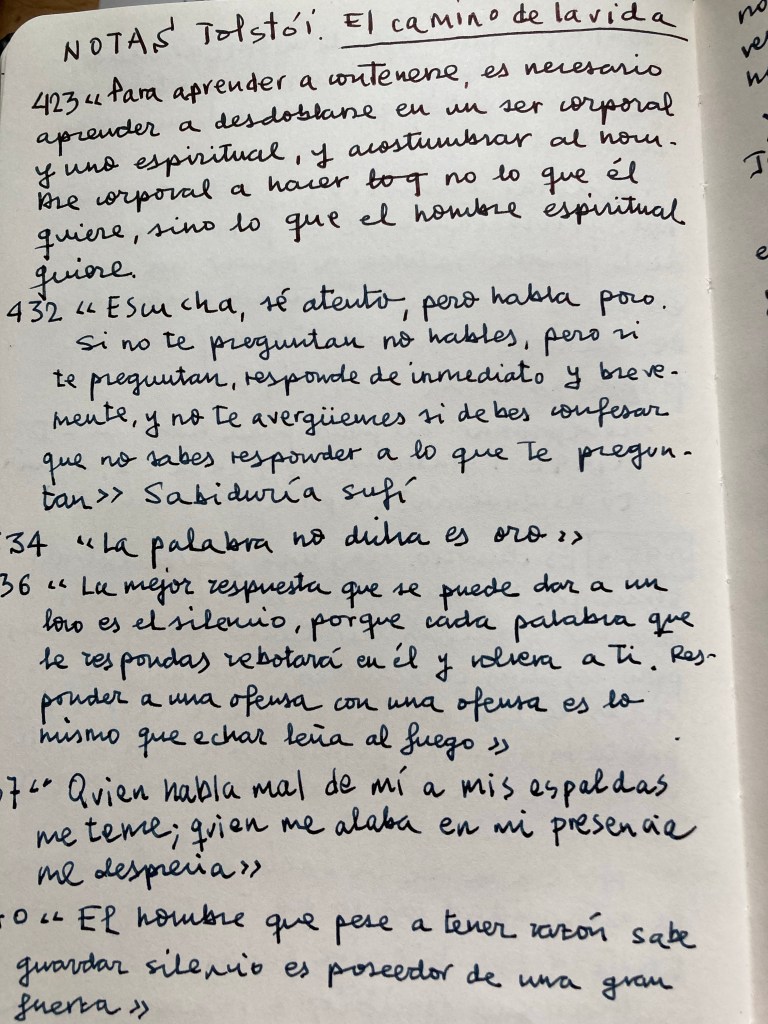 NOTAS Tolstói. El camino de la vida
423 "Para aprender a contenerse, es necesario
aprender a desdoblarse en un ser corporal
y uno espiritual, y acostumbrar al hom-
bre corporal a hacer lo q no lo que él
quiere, sino lo que el hombre espiritual
quiere.
432 "Escucha, sé atento, pero habla poco.
Si no te preguntan no hables, pero si
te preguntan, responde de inmediato y breve-
mente, y no te avergüences si debes confesar
que no sabes responder a lo que te pregun-
tan>> Sabiduría sufí
34 "La palabra no dicha es oro>>
36 "La mejor respuesta que se puede dar a un
loco es el silencio, porque cada palabra que
le respondas rebotará en él y volverá a ti. Res-
ponder a una ofensa con una ofensa es lo
mismo que echar leña al fuego>>
7 "Quien habla mal de mí a mis espaldas
me teme; quien me alaba en mi presencia
me desprecia>>
0 "El hombre que pese a tener razón sabe
guardar silencio es poseedor de una gran
fuerza>>